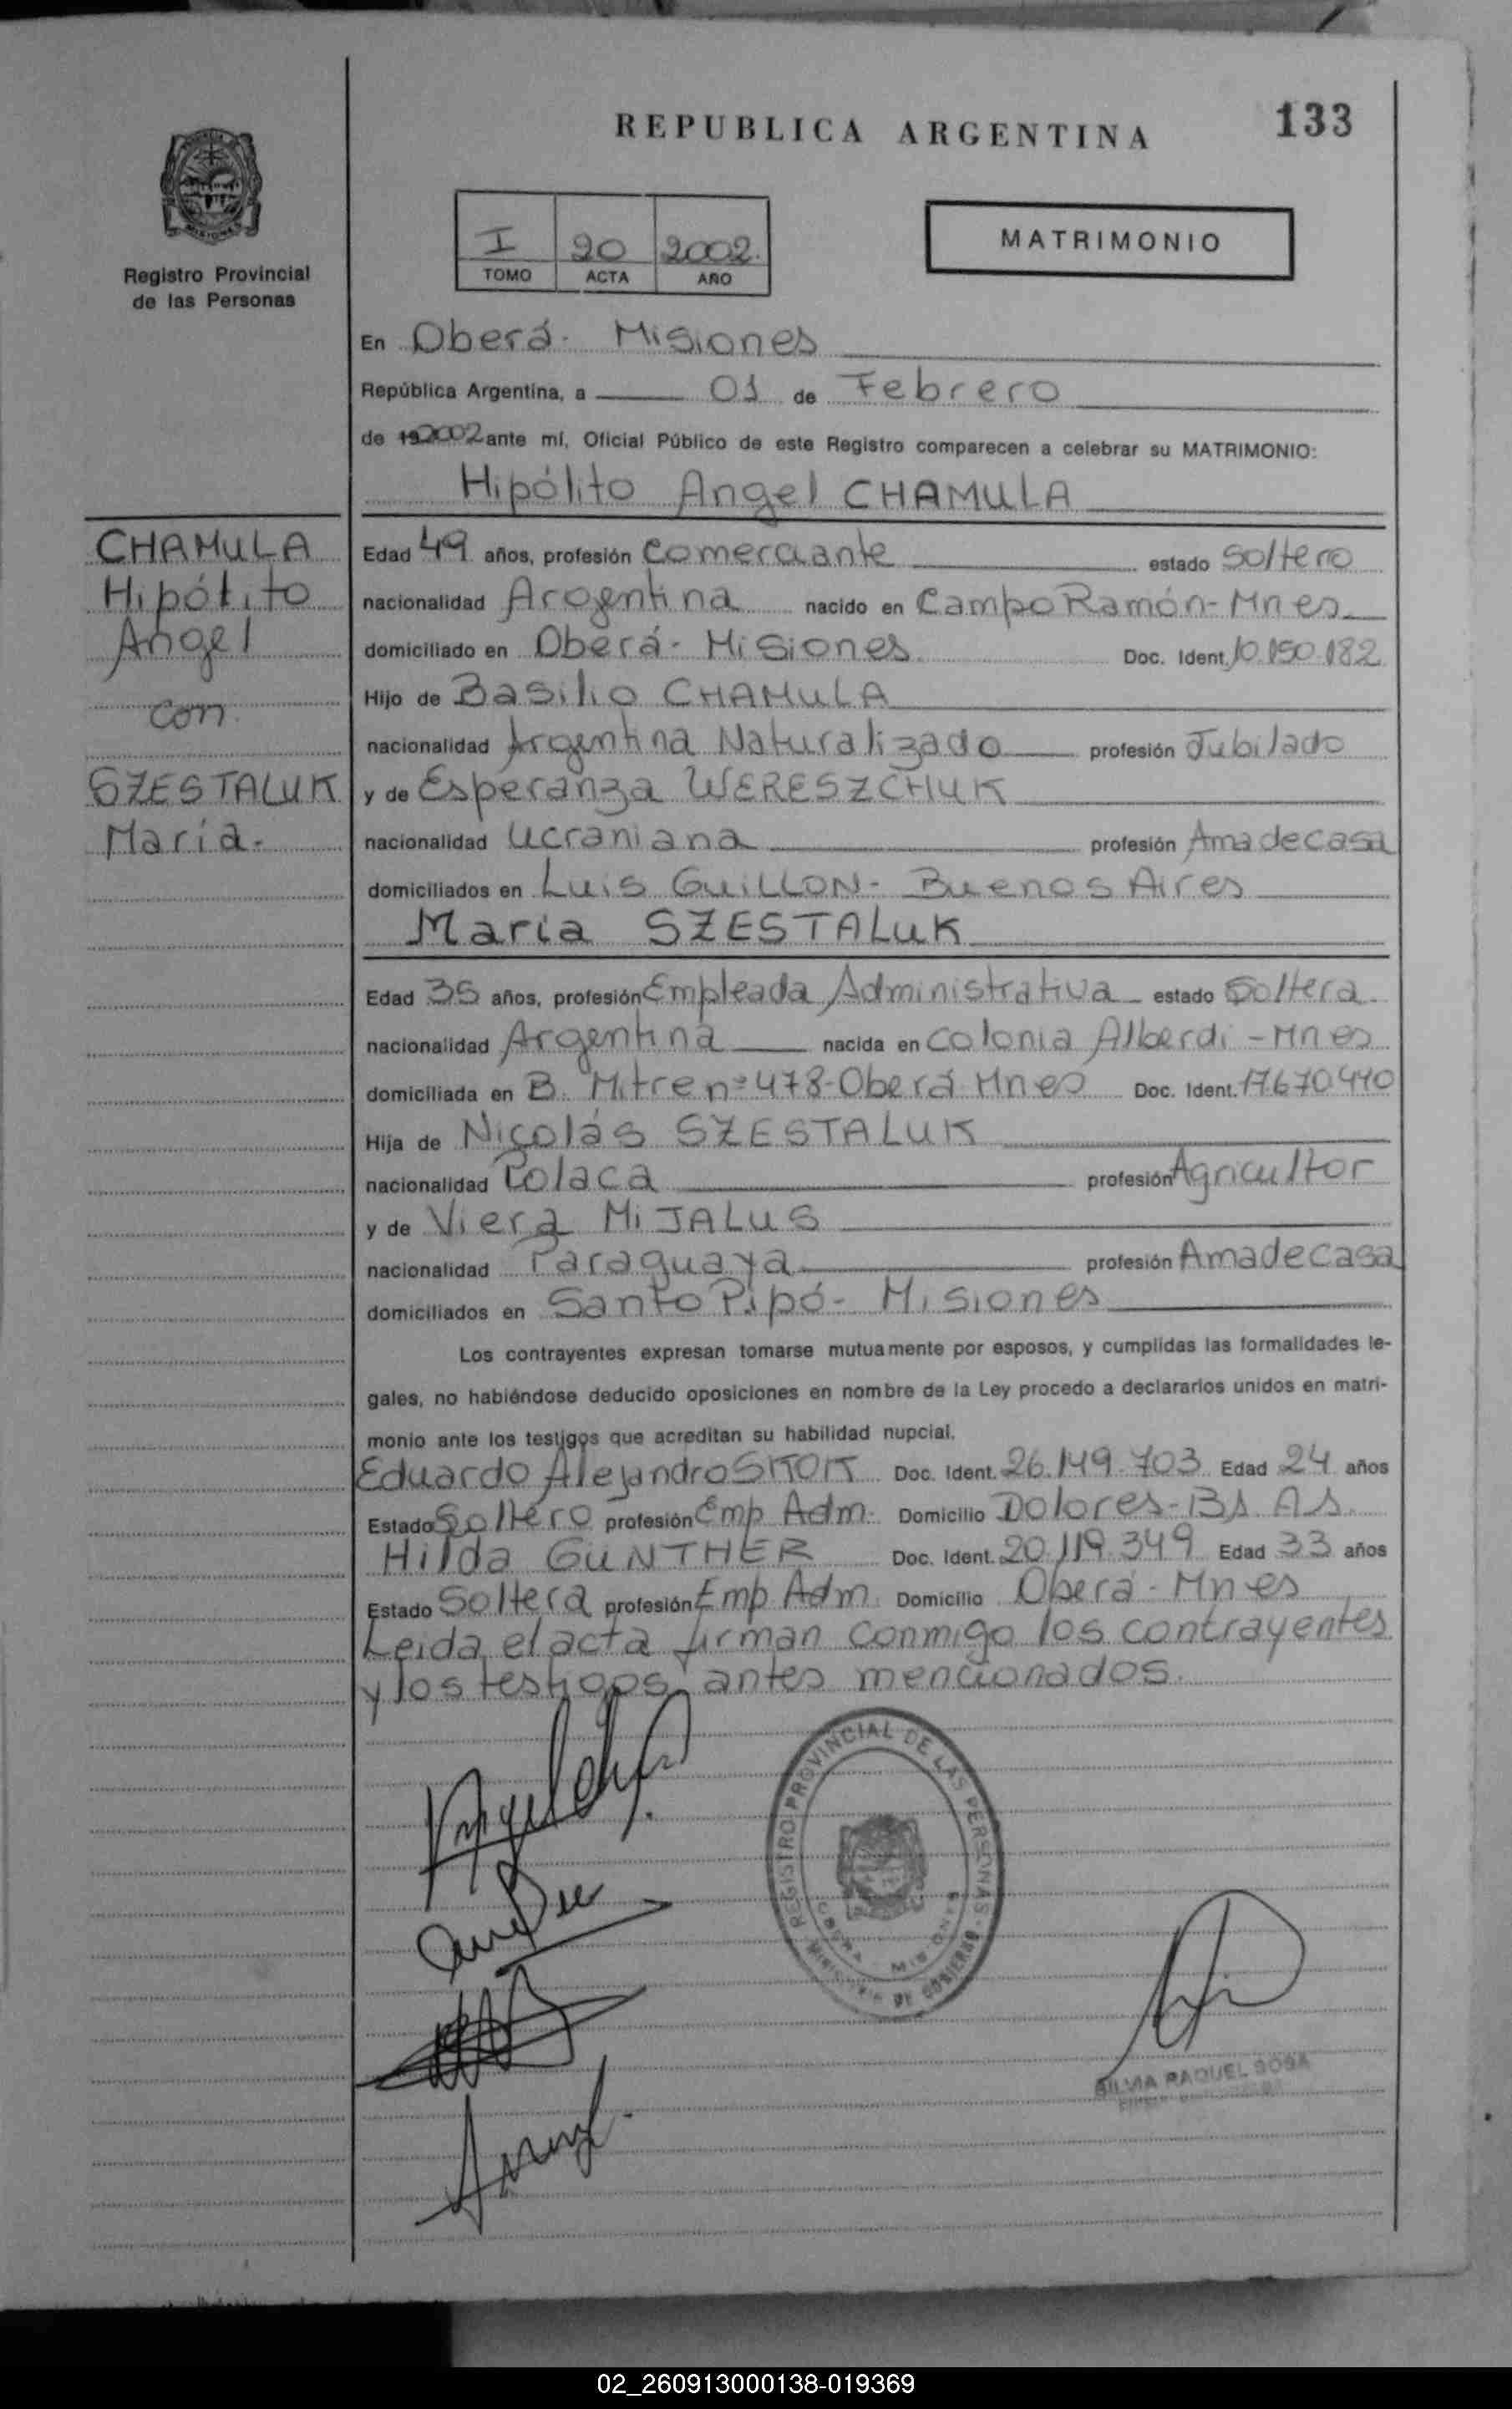 REPUBLICA ARGENTINA
133
MISIONES
Registro Provincial
de las Personas
I 20 2002.
TOMO ACTA AÑO
MATRIMONIO
En Oberá - Misiones
República Argentina, a 01 de Febrero
de 192002 ante mí, Oficial Público de este Registro comparecen a celebrar su MATRIMONIO:
Hipólito Angel CHAMULA
CHAMULA
Hipólito
Angel
con
SZESTALUK
María.
Edad 49 años, profesión Comerciante estado Soltero
nacionalidad Argentina nacido en Campo Ramón - Mnes
domiciliado en Oberá - Misiones Doc. Ident. 10.150.182
Hijo de Basilio CHAMULA
nacionalidad Argentina Naturalizado profesión Jubilado
y de Esperanza WERESZCHUK
nacionalidad Ucraniana profesión Ama de casa
domiciliados en Luis GuiLLON - Buenos Aires
María SZESTALUK
Edad 35 años, profesión Empleada Administrativa estado Soltera
nacionalidad Argentina nacida en Colonia Alberdi - Mnes
domiciliada en B. Mitre nº 478 - Oberá Mnes Doc. Ident. 17.670.440
Hija de Nicolás SZESTALUK
nacionalidad Polaca profesión Agricultor
y de Viera MiJALUS
nacionalidad Paraguaya profesión Ama de casa
domiciliados en Santo Pipó - Misiones
Los contrayentes expresan tomarse mutuamente por esposos, y cumplidas las formalidades le-
gales, no habiéndose deducido oposiciones en nombre de la Ley procedo a declararlos unidos en matri-
monio ante los testigos que acreditan su habilidad nupcial.
Eduardo Alejandro SKOK Doc. Ident. 26.149.703 Edad 24 años
Estado Soltero profesión Emp Adm. Domicilio Dolores - Bs As.
Hilda GUNTHER Doc. Ident. 20.119.349 Edad 33 años
Estado Soltera profesión Emp Adm. Domicilio Oberá - Mnes
Leida el acta firman conmigo los contrayentes
y los testigos antes mencionados.
REGISTRO PROVINCIAL DE LAS PERSONAS
MINISTERIO DE GOBIERNO
OBERA - MISIONES
SILVIA RAQUEL SOSA
02_260913000138-019369